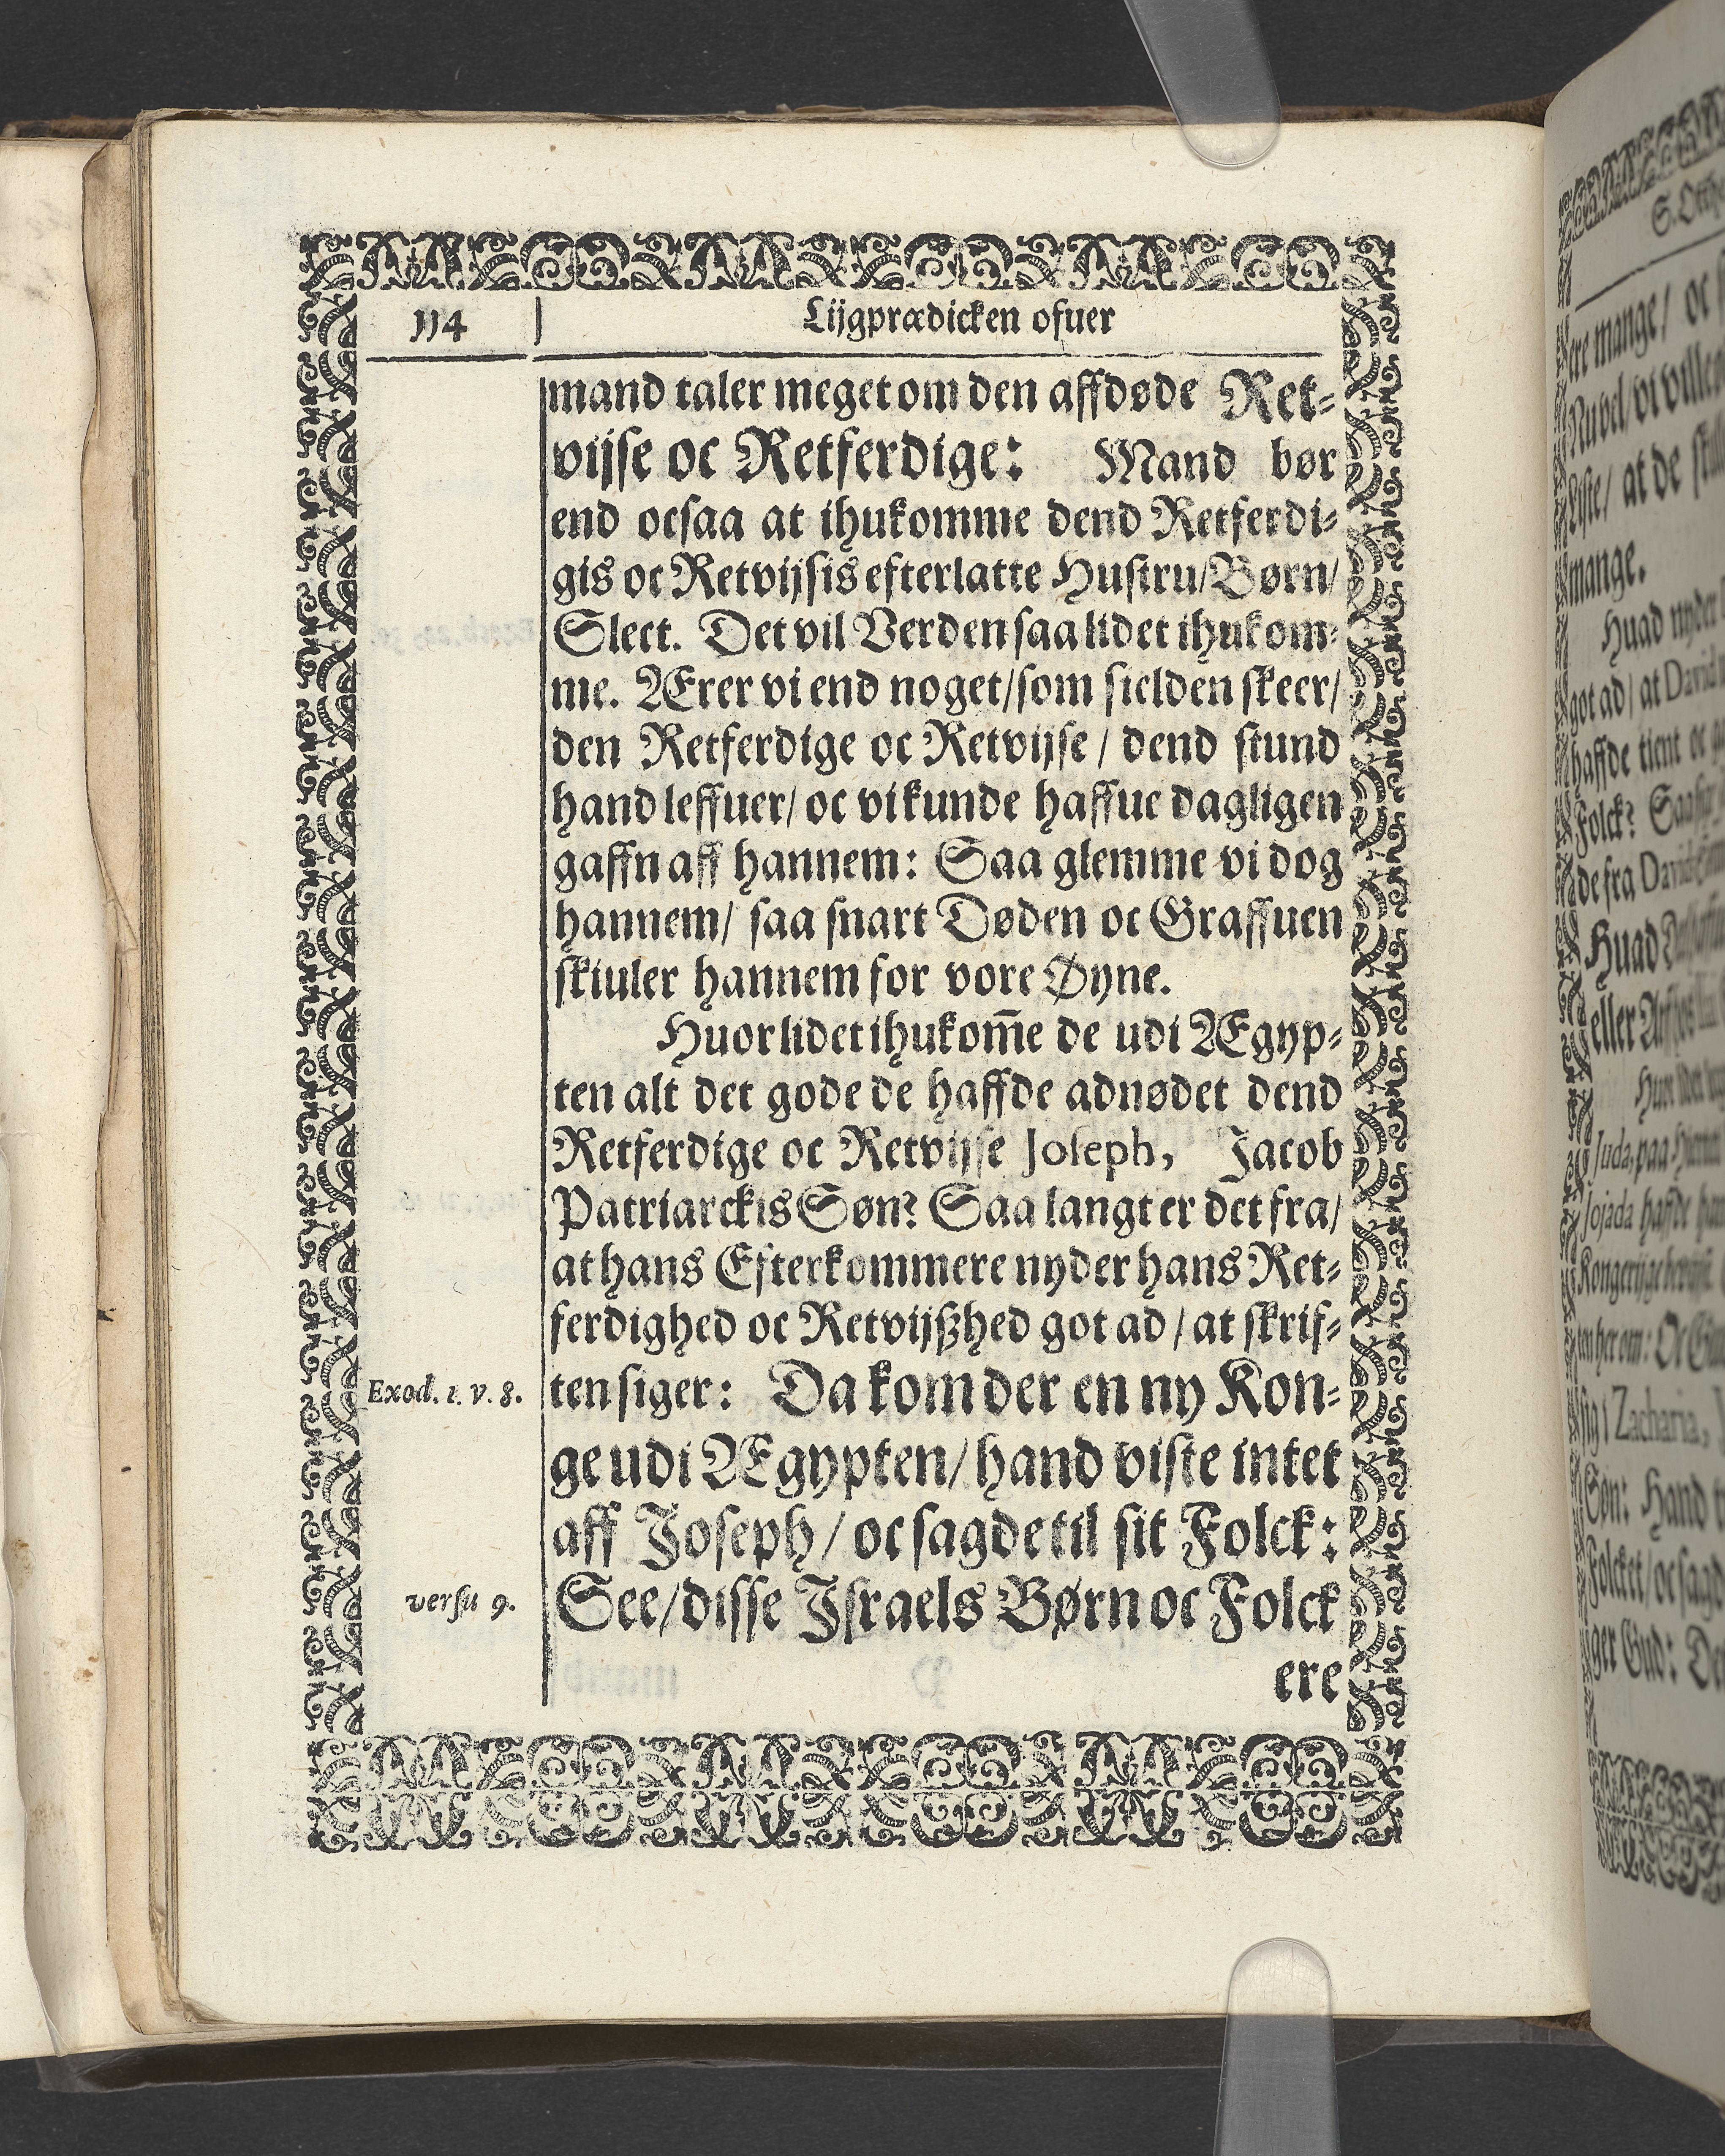 114
Lijgprædicken ofuer
mand taler meget om den affdøde Ret-
vijse oc Retferdige: Mand bør
end ocsaa at ihukomme dend Retferdi-
gis oc Retvijsis efterlatte Hustru/Børn/
Slect. Det vil Verden saa lidet ihukom-
me. Ærer vi end noget/som sielden skeer/
den Retferdige oc Retvijse / dend stund
hand leffuer/ oc vi kunde haffue dagligen
gaffn aff hannem: Saa glemme vi dog
hannem/ saa snart Døden oc Graffuen
skiuler hannem for vore Øyne.
Huor lidet ihukom̄e de udi Ægyp-
ten alt det gode de haffde adnødet dend
Retferdige oc Retvijse Joseph, Jacob
Patriarckis Søn? Saa langt er det fra/
at hans Efterkommere nyder hans Ret-
ferdighed oc Retvijßhed got ad / at skrif-
Exod. 1. v. 8.
ten siger: Da kom der en ny Kon-
ge udi Ægypten/ hand viste intet
aff Joseph / oc sagde til sit Folck:
versu 9.
See/disse Israels Børn oc Folck
ere
S. Otthe
ere mange/ oc
mange.
Huad nyder
got ad/ at David
haffde tient oc
Folck?
de fra David
Huad
eller
Juda, paa
Jojada haffde
sig i Zacharia,
Søn: Hand
Folcket/ oc sagde
ger Gud: